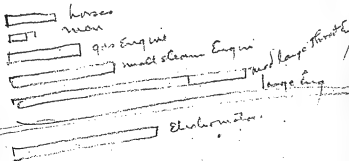 horses
man
gas Engine
small steam Engine
large
large Eng
Electromotor